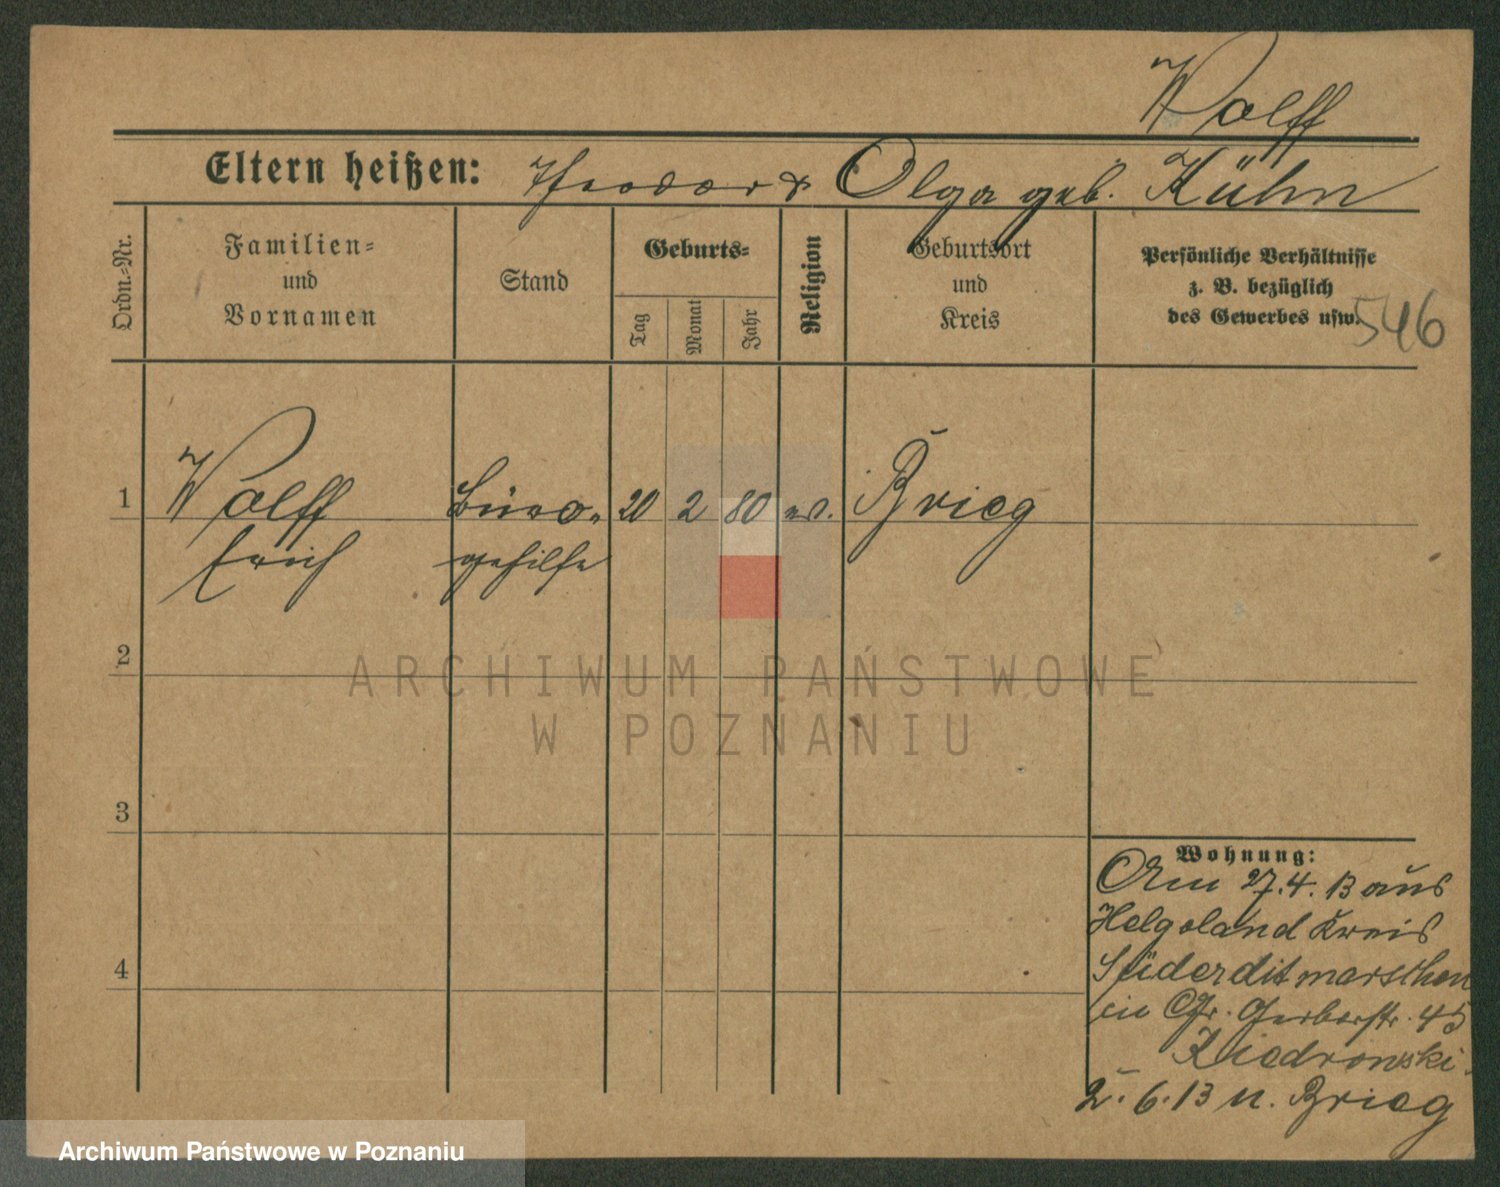 Wolff
Eltern heißen: Theodor & Olga geb. Kühn
Ordn.-Nr.
Familien-
und
Vornamen
Stand
Geburts-
Tag
Monat
Jahr
Religion
Geburtsort
und
Kreis
Persönliche Verhältnisse
z. B. bezüglich
des Gewerbes usw.
546
1 Wolff Büro- 20 2 80 ev. Brieg
Erich gehilfe
2
3
4
Wohnung:
Am 27.4.13 aus
Helgoland Kreis
Süderditmarschen
in Gr. Gerberstr. 45
Kiedrowski.
2.6.13 n. Brieg
ARCHIWUM PAŃSTWOWE
W POZNANIU
Archiwum Państwowe w Poznaniu